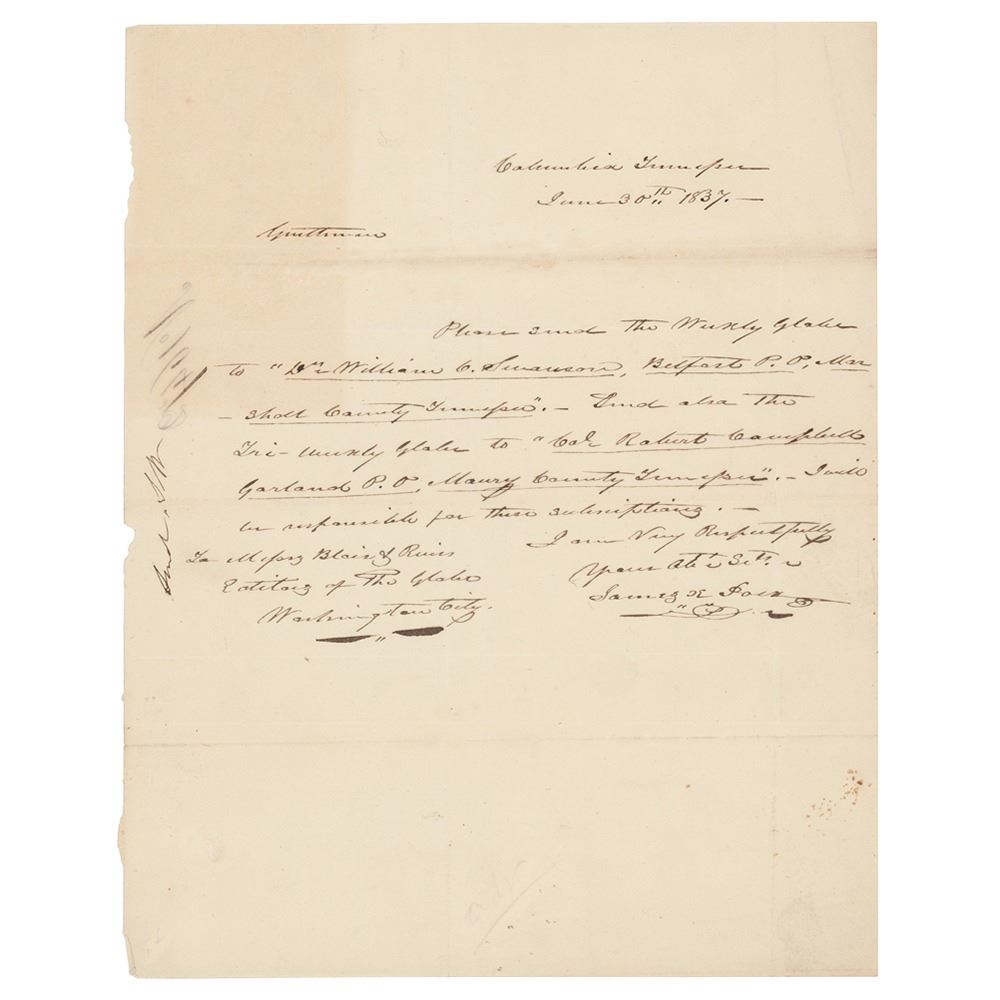 Columbia Tennessee
June 30th 1837. —
Gentlemen
Please send the Weekly Globe
to "Dr. William C. Swanson, Belfast P. O, Mar
- shall County Tennessee". — Send also the
Tri-weekly Globe to "Col. Robert Campbell
Garland P. O, Maury County Tennessee". — I will
be responsible for these subscriptions. —
I am Very Respectfully
Your Obt. Sert.
James K Polk
To Messrs Blair & Rives
Editors of The Globe
Washington City.